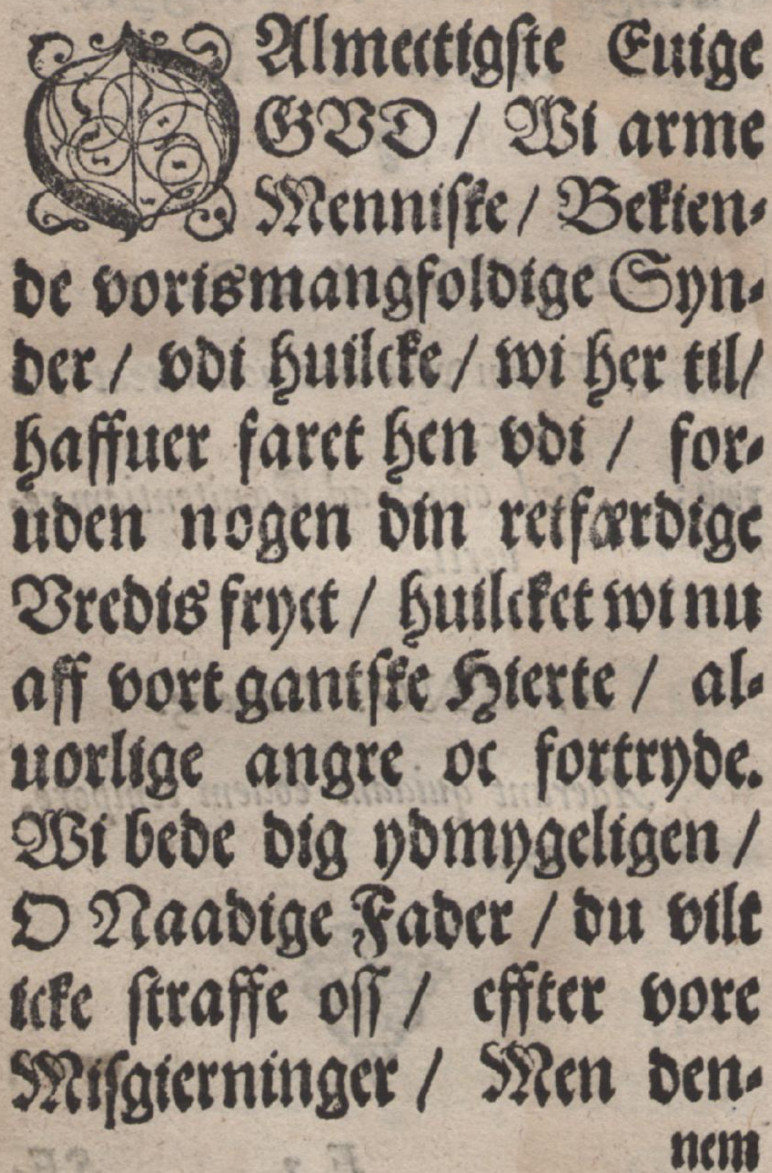 O Almectigste Euige
GVD / Wi arme
Menniske / Bekien⸗
de vorismangfoldige Syn⸗
der / vdi huilcke / wi her til /
haffuer faret hen vdi / for⸗
uden nogen din retfærdige
Vredis fryct / huilcket wi nu
aff vort gantske Hierte / al⸗
uorlige angre oc fortryde.
Wi bede dig ydmygeligen /
O Naadige Fader / du vilt
icke straffe oss / effter vore
Misgierninger / Men den⸗
nem